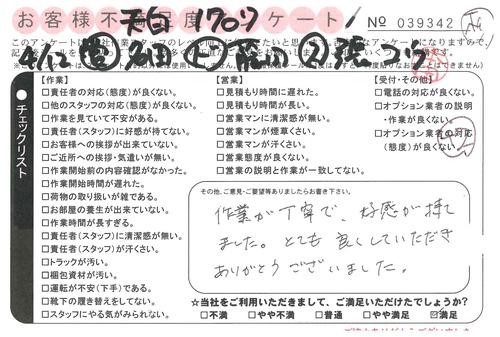 お客様不満足度アンケート!
No 039342
【作業】
□責任者の対応(態度)が良くない。
□他のスタッフの対応(態度)が良くない。
□作業を見ていて不安がある。
□責任者(スタッフ)に好感が持てない。
□お客様への挨拶が出来ていない。
□ご近所への挨拶・気遣いが無い。
□作業開始前の内容確認がなかった。
□作業開始時間が遅れた。
□荷物の取り扱いが雑である。
□お部屋の養生が出来ていない。
□作業時間が長すぎる。
□責任者(スタッフ)に清潔感が無い。
□責任者(スタッフ)が汗くさい。
□トラックが汚い。
□梱包資材が汚い。
□運転が不安(下手)である。
□靴下の履き替えをしてない。
□スタッフにやる気がみられない。
【営業】
□見積もり時間に遅れた。
□見積もり時間が長い。
□営業マンに清潔感が無い。
□営業マンが煙草くさい。
□営業マンが汗くさい。
□営業態度が良くない。
□営業の説明と作業が一致してない。
【受付・その他】
□電話の対応が良くない。
□オプション業者の説明
・作業が良くない。
□オプション業者の対応
(態度)が良くない。
チェックリスト
その他、ご意見・ご要望等ありましたらお書き下さい。
作業が丁寧で、好感が持て
ました。とても良くしていただき
ありがとうございました。
☆当社をご利用いただきまして、ご満足いただけたでしょうか?
□不満 □やや不満 □普通 □やや満足 ☑満足